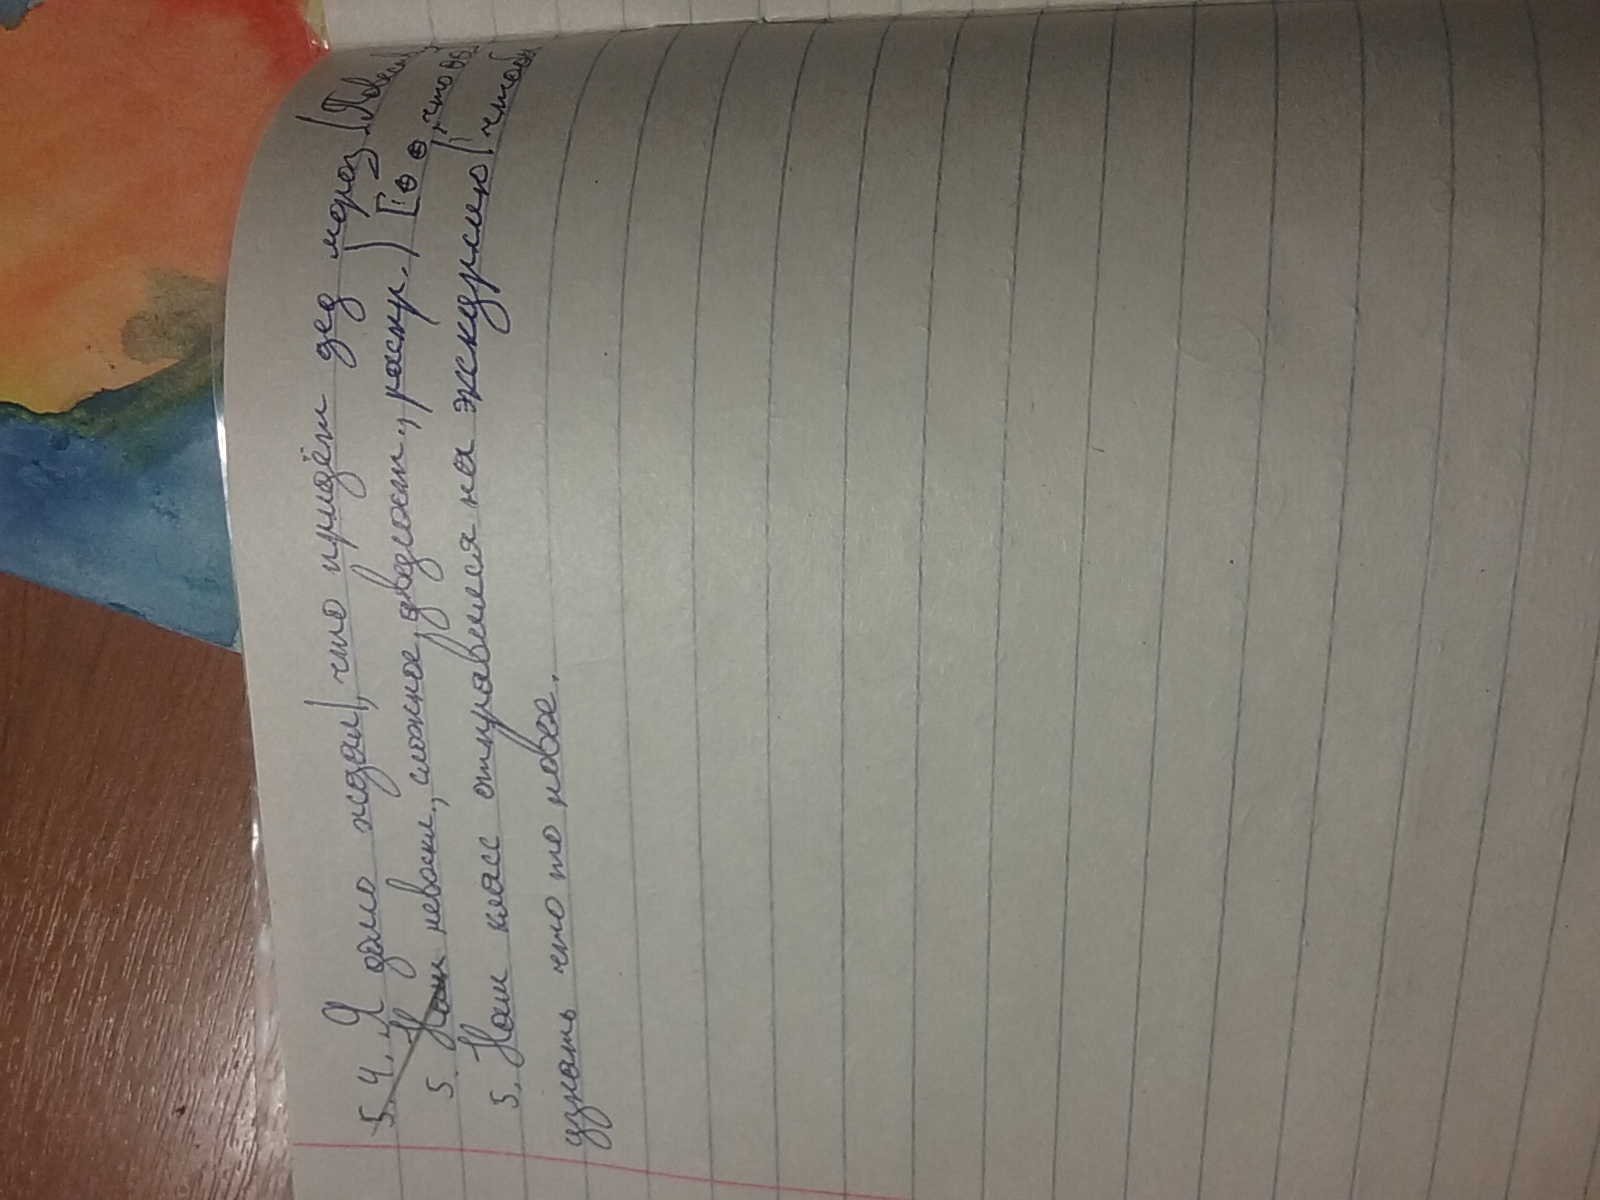 4. Я дамо ждал, что придёт дед мороз (Повеств
5. Нам невоскл., сложное, двусост., распр.) [⊖ ⊖, что
5. Наш класс отправился на экскурсию, чтобы
узнать что то новое.